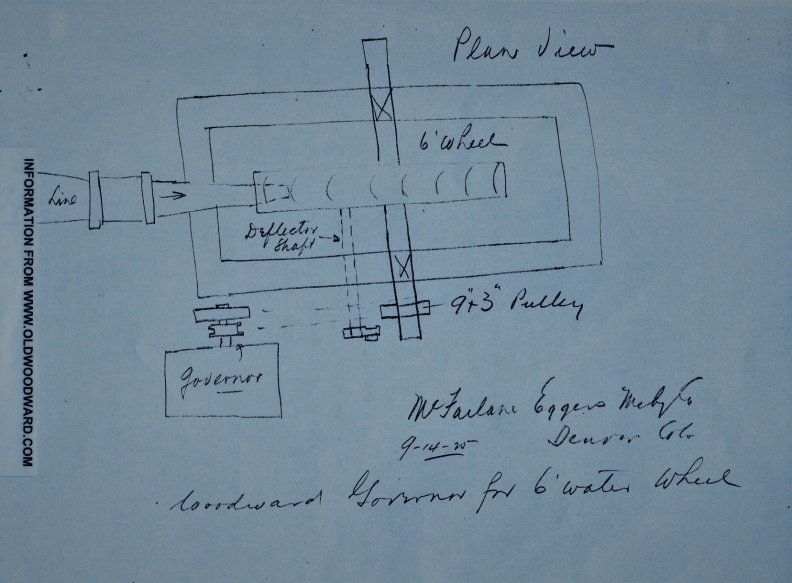 Plan View
6' Wheel
Line
Deflector
Shaft
9"x3" Pulley
Governor
McFarlane Eggers Mchy Co
Denver Colo
9-14-25
Woodward Governor for 6' water wheel
INFORMATION FROM WWW.OLDWOODWARD.COM